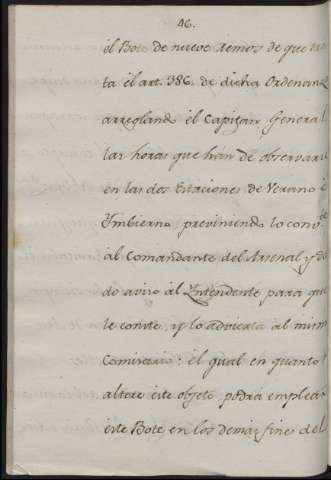 46.
el Bote de nueve remos de que tra
ta el art. 386. de dicha Ordenanz
arregland el Capitan General
las horas que han de observars
en las dos Estaciones de Verano é
Imbierno, previniendo lo conv.te
al Comandante del Arsenal y d
de aviso al Yntendente para que
le conste, y lo advierta al mism
Comisario: el qual en quanto
altere este objeto podrá emplea
este Bote en los demas fines del